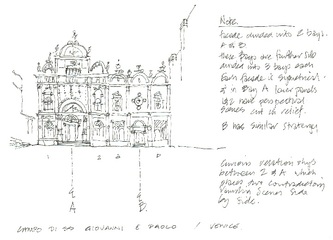 Note.
facade divided into 2 bays.
A & B
these Bays are further sub
divided into 3 bays each
Each facade is symmetrical.
in Bay A lower panels
have perspectival
scenes cut in relief.
B has similar strategy
Curious relationships
between 2 & A which
places two contradictory
Side
by Side.
1 2 2
A B
CAMPO DI SS GIOVANNI E PAOLO / VENICE.